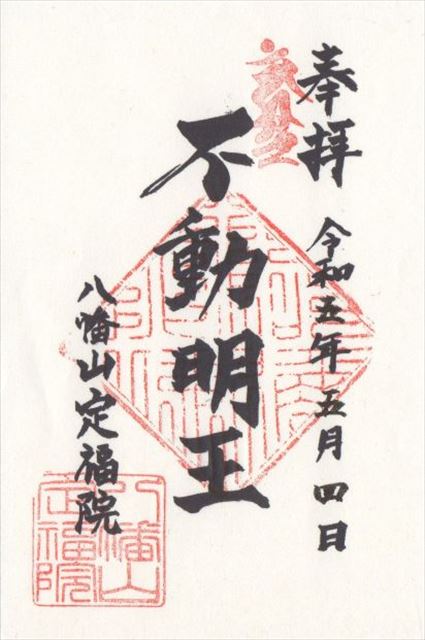 奉拝
令和五年五月四日
不動明王
八幡山定福院
八幡山
定福院